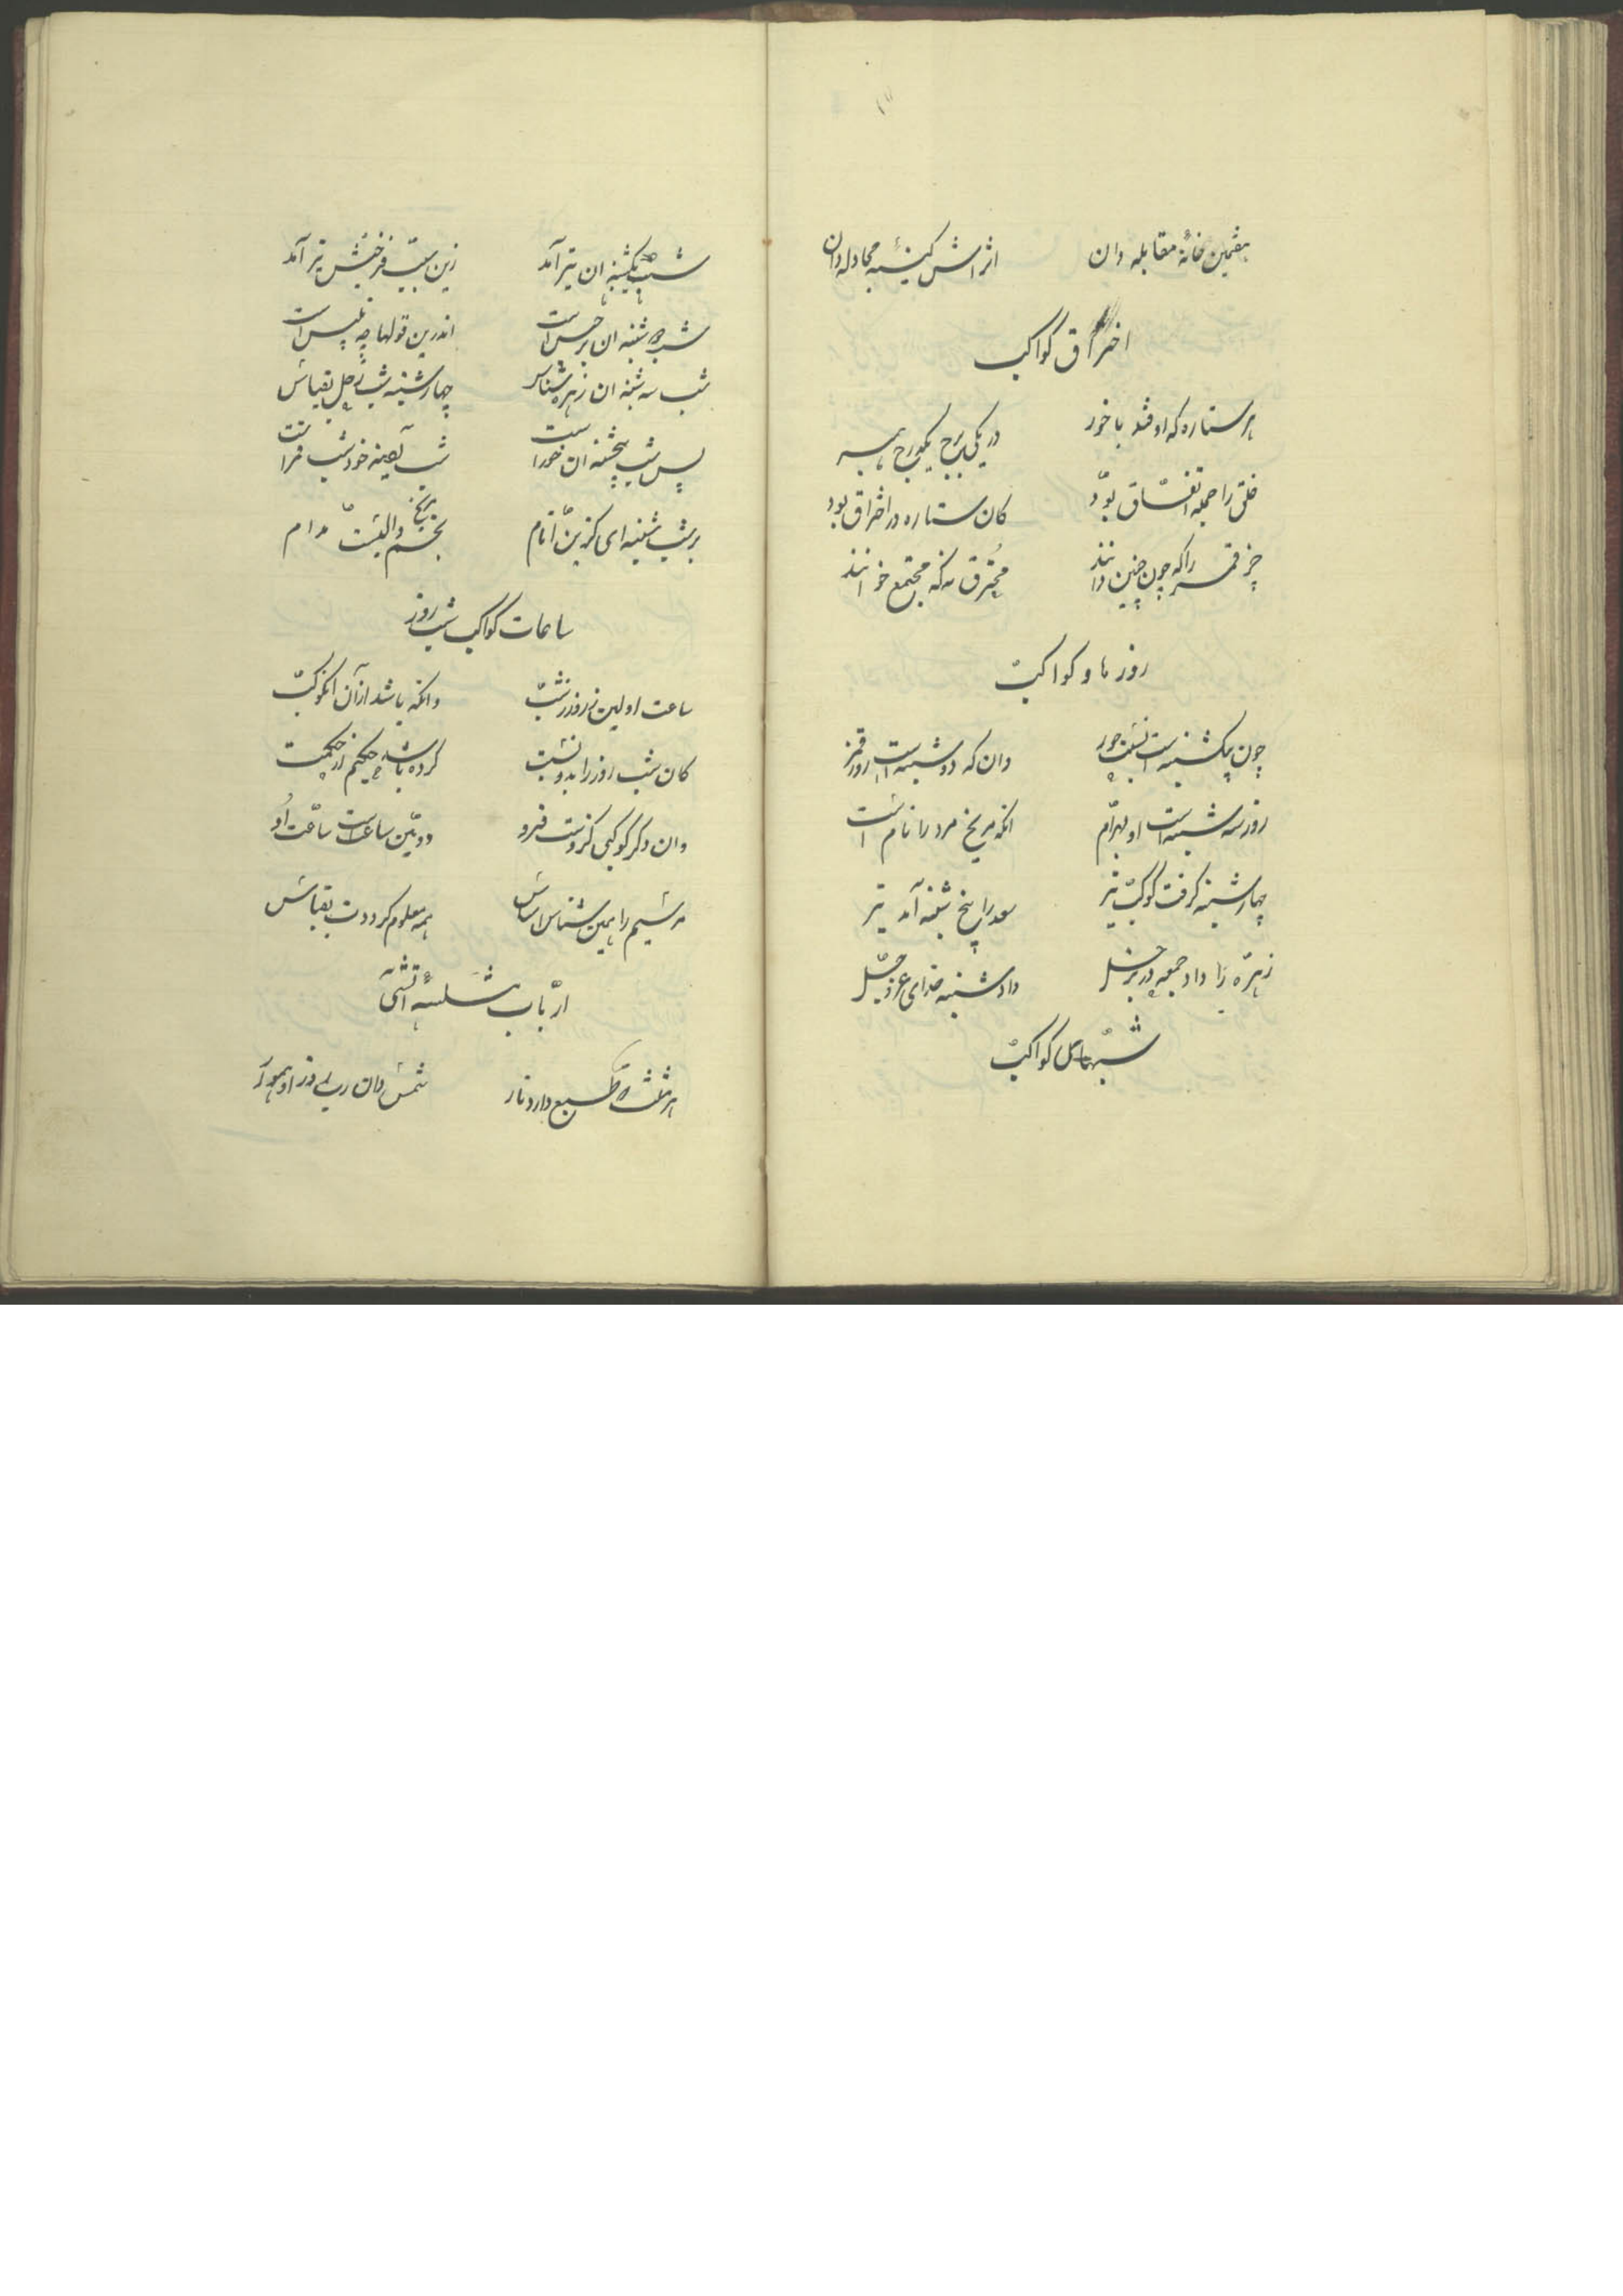 هفتمین خانهٔ مقابله دان اثراتش کینهٔ مجادله دان
احتراق کواکب
هر ستاره که اوفتد با خور در یکی برج یکدرج همبر
خلق را جمله اتفاق بود کان ستاره در احتراق بود
جز قمر را که چون چنین دانند محترق نه که مجتمع خوانند
روزها و کواکب
چون یکشنبه است خور وان که دوشنبه است روز قمر
روز سه شنبه است او بهرام انکه مریخ مرد را نام است
چهارشنبه گرفت کوکب تیر سعد را پنج شنبه آمد تیر
زهره را داد جمعه داد شنبه خدای عزوجل
شبهای کواکب
شب یکشنبه ان تیر آمد زین سبب تیر آمد
شب دوشنبه ان برجیس است اندرین قولها چه تلبیس است
شب سه شنبه ان زهره شناس چهارشنبه شب زحل بقیاس
پس شب پنجشنبه ان خور است شب آدینه خود شب قمر است
بر شب شنبه ای گزین انام نجم مریخ والیست مدام
ساعات کواکب شب روز
ساعت اولین ز روز و ز شب وانکه باشد از آن انکوکب
کان شب روز را بدو نسبت کرده باشد حکیم از حکمت
وان دگر کوکبی کزوست فرو دومین ساعت است ساعت او
هم سیم را همین شناس اساس همه معلوم گرددت بقیاس
ارباب مثلثهٔ آتشی
هر مثلث که طبع دارد نار شمس دان رب روز او هموار